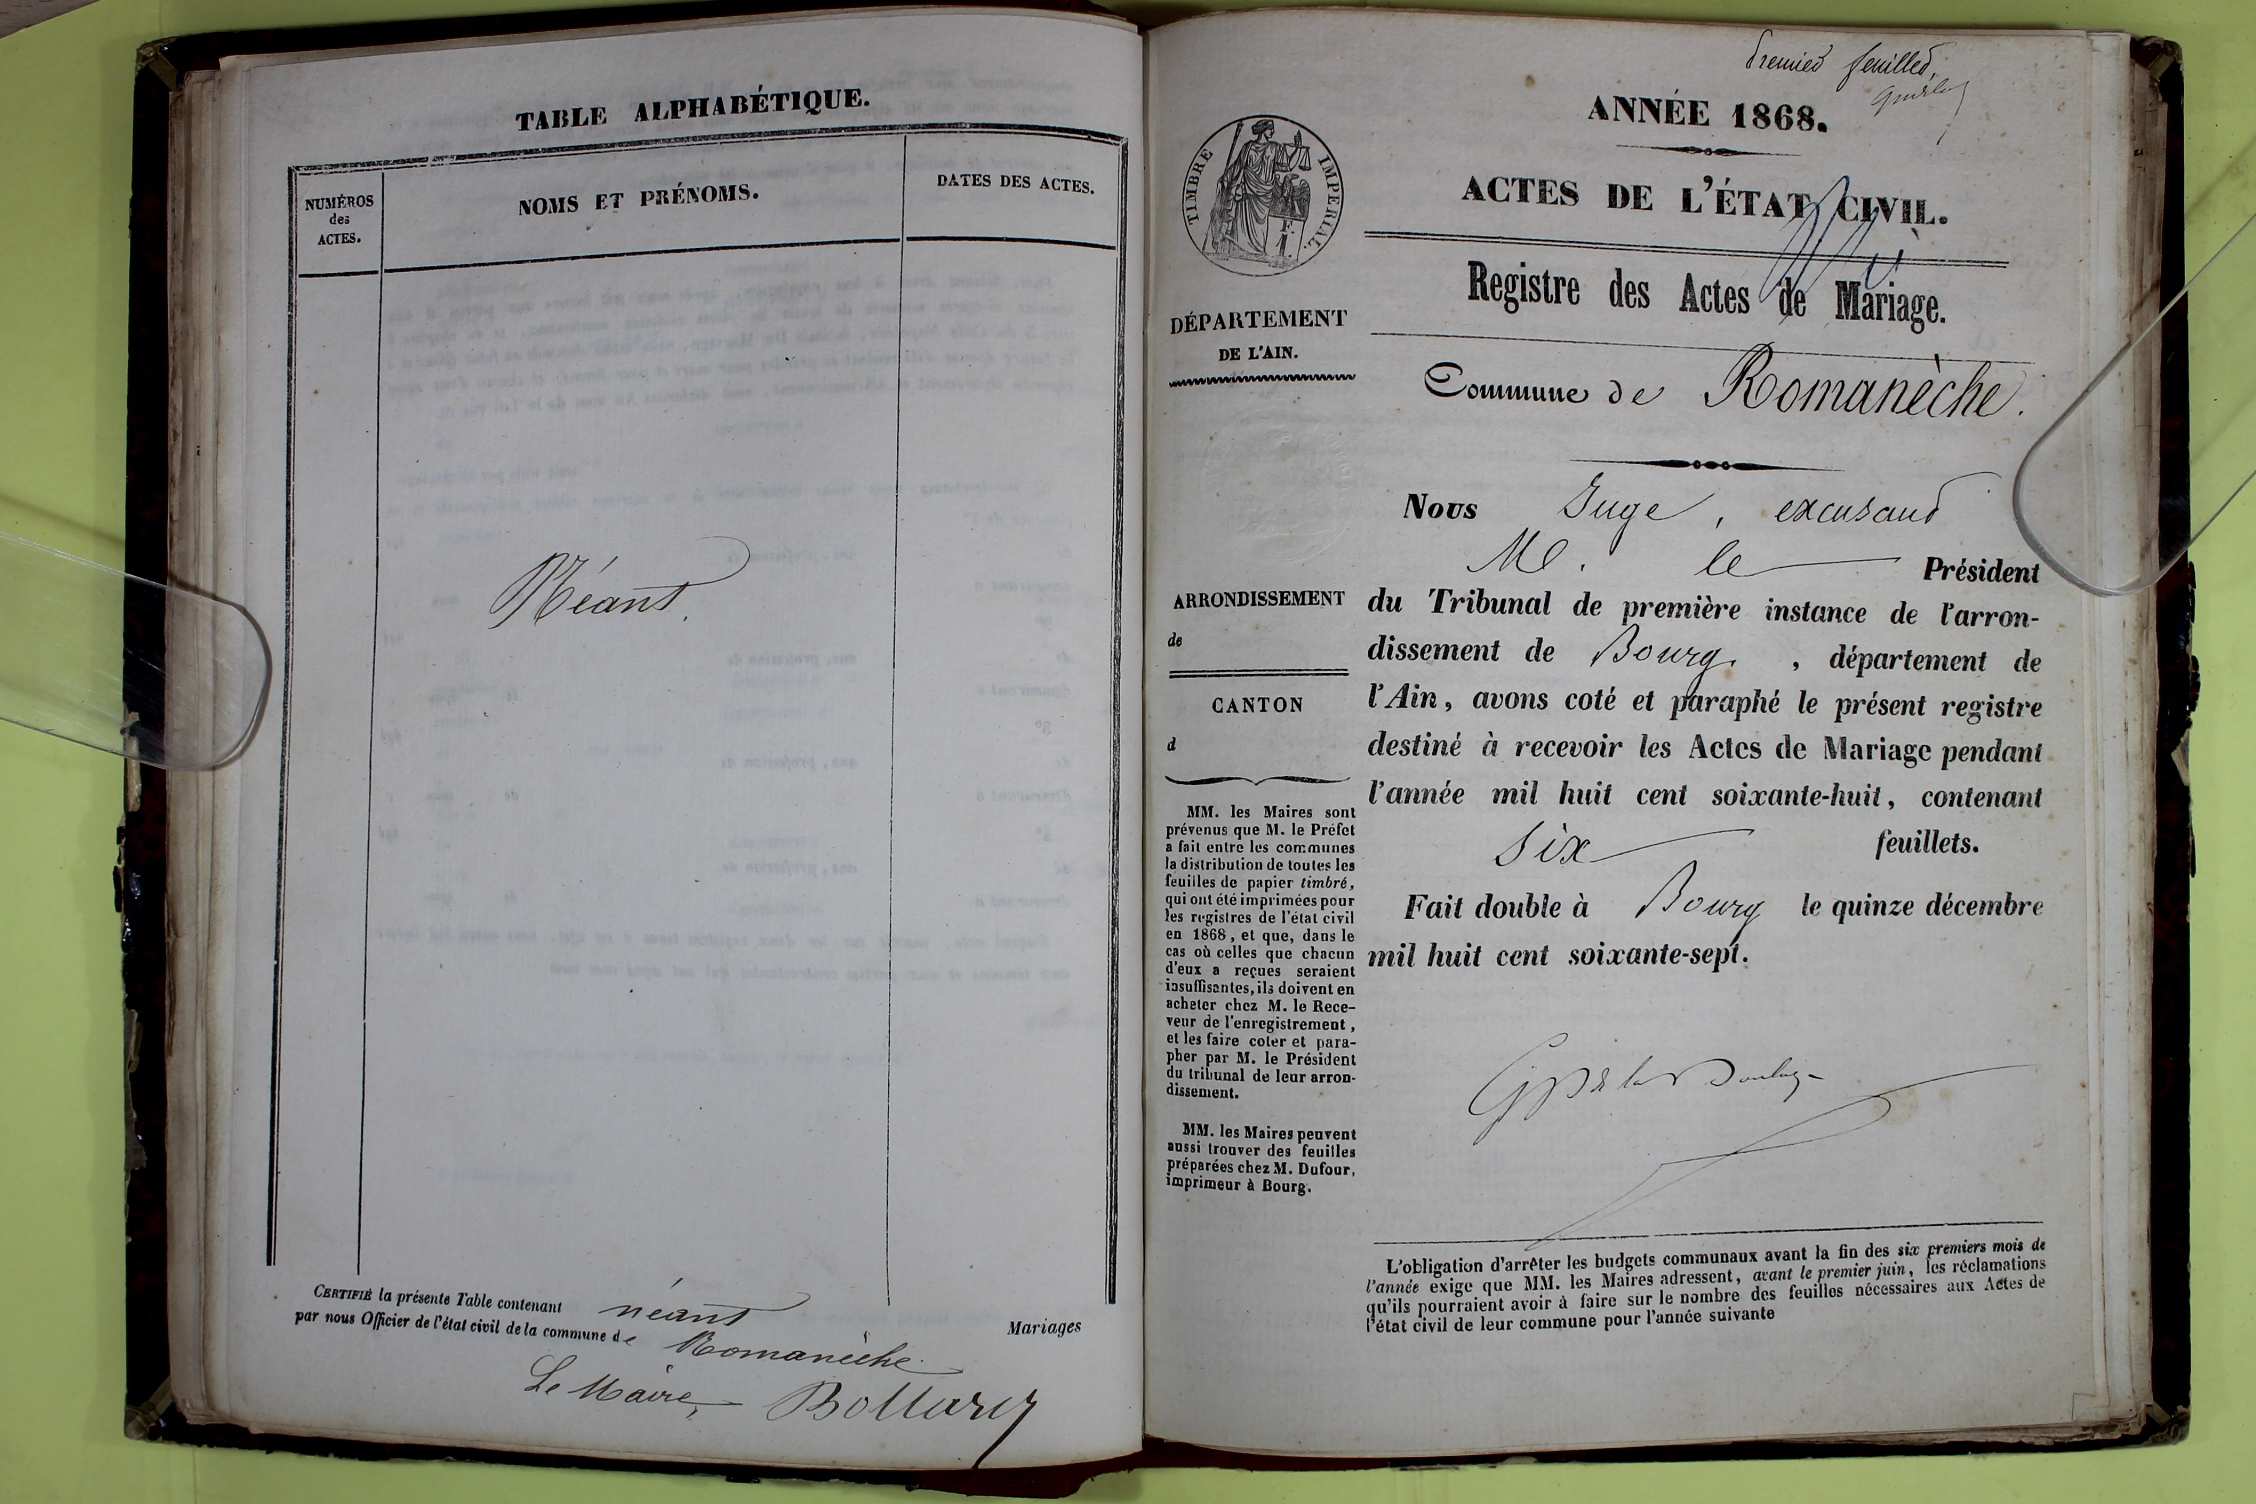 TABLE ALPHABÉTIQUE.
NUMÉROS
des
ACTES.
NOMS ET PRÉNOMS.
DATES DES ACTES.
Néant.
CERTIFIÉ la présente Table contenant néant Mariages
par nous Officier de l'état civil de la commune de Romanèche.
Le Maire,
Premier feuillet,
ANNÉE 1868.
ACTES DE L'ÉTAT CIVIL.
Registre des Actes de Mariage.
Commune de Romanèche.
TIMBRE IMPÉRIAL.
DÉPARTEMENT
DE L'AIN.
ARRONDISSEMENT
de
CANTON
d
MM. les Maires sont
prévenus que M. le Préfet
a fait entre les communes
la distribution de toutes les
feuilles de papier timbré,
qui ont été imprimées pour
les registres de l'état civil
en 1868, et que, dans le
cas où celles que chacun
d'eux a reçues seraient
insuffisantes, ils doivent en
acheter chez M. le Rece-
veur de l'enregistrement,
et les faire coter et para-
pher par M. le Président
du tribunal de leur arron-
dissement.
MM. les Maires peuvent
aussi trouver des feuilles
préparées chez M. Dufour,
imprimeur à Bourg.
Nous Juge, excusant
M. le Président
du Tribunal de première instance de l'arron-
dissement de Bourg, département de
l'Ain, avons coté et paraphé le présent registre
destiné à recevoir les Actes de Mariage pendant
l'année mil huit cent soixante-huit, contenant
six feuillets.
Fait double à Bourg le quinze décembre
mil huit cent soixante-sept.
L'obligation d'arrêter les budgets communaux avant la fin des six premiers mois de
l'année exige que MM. les Maires adressent, avant le premier juin, les réclamations
qu'ils pourraient avoir à faire sur le nombre des feuilles nécessaires aux Actes de
l'état civil de leur commune pour l'année suivante